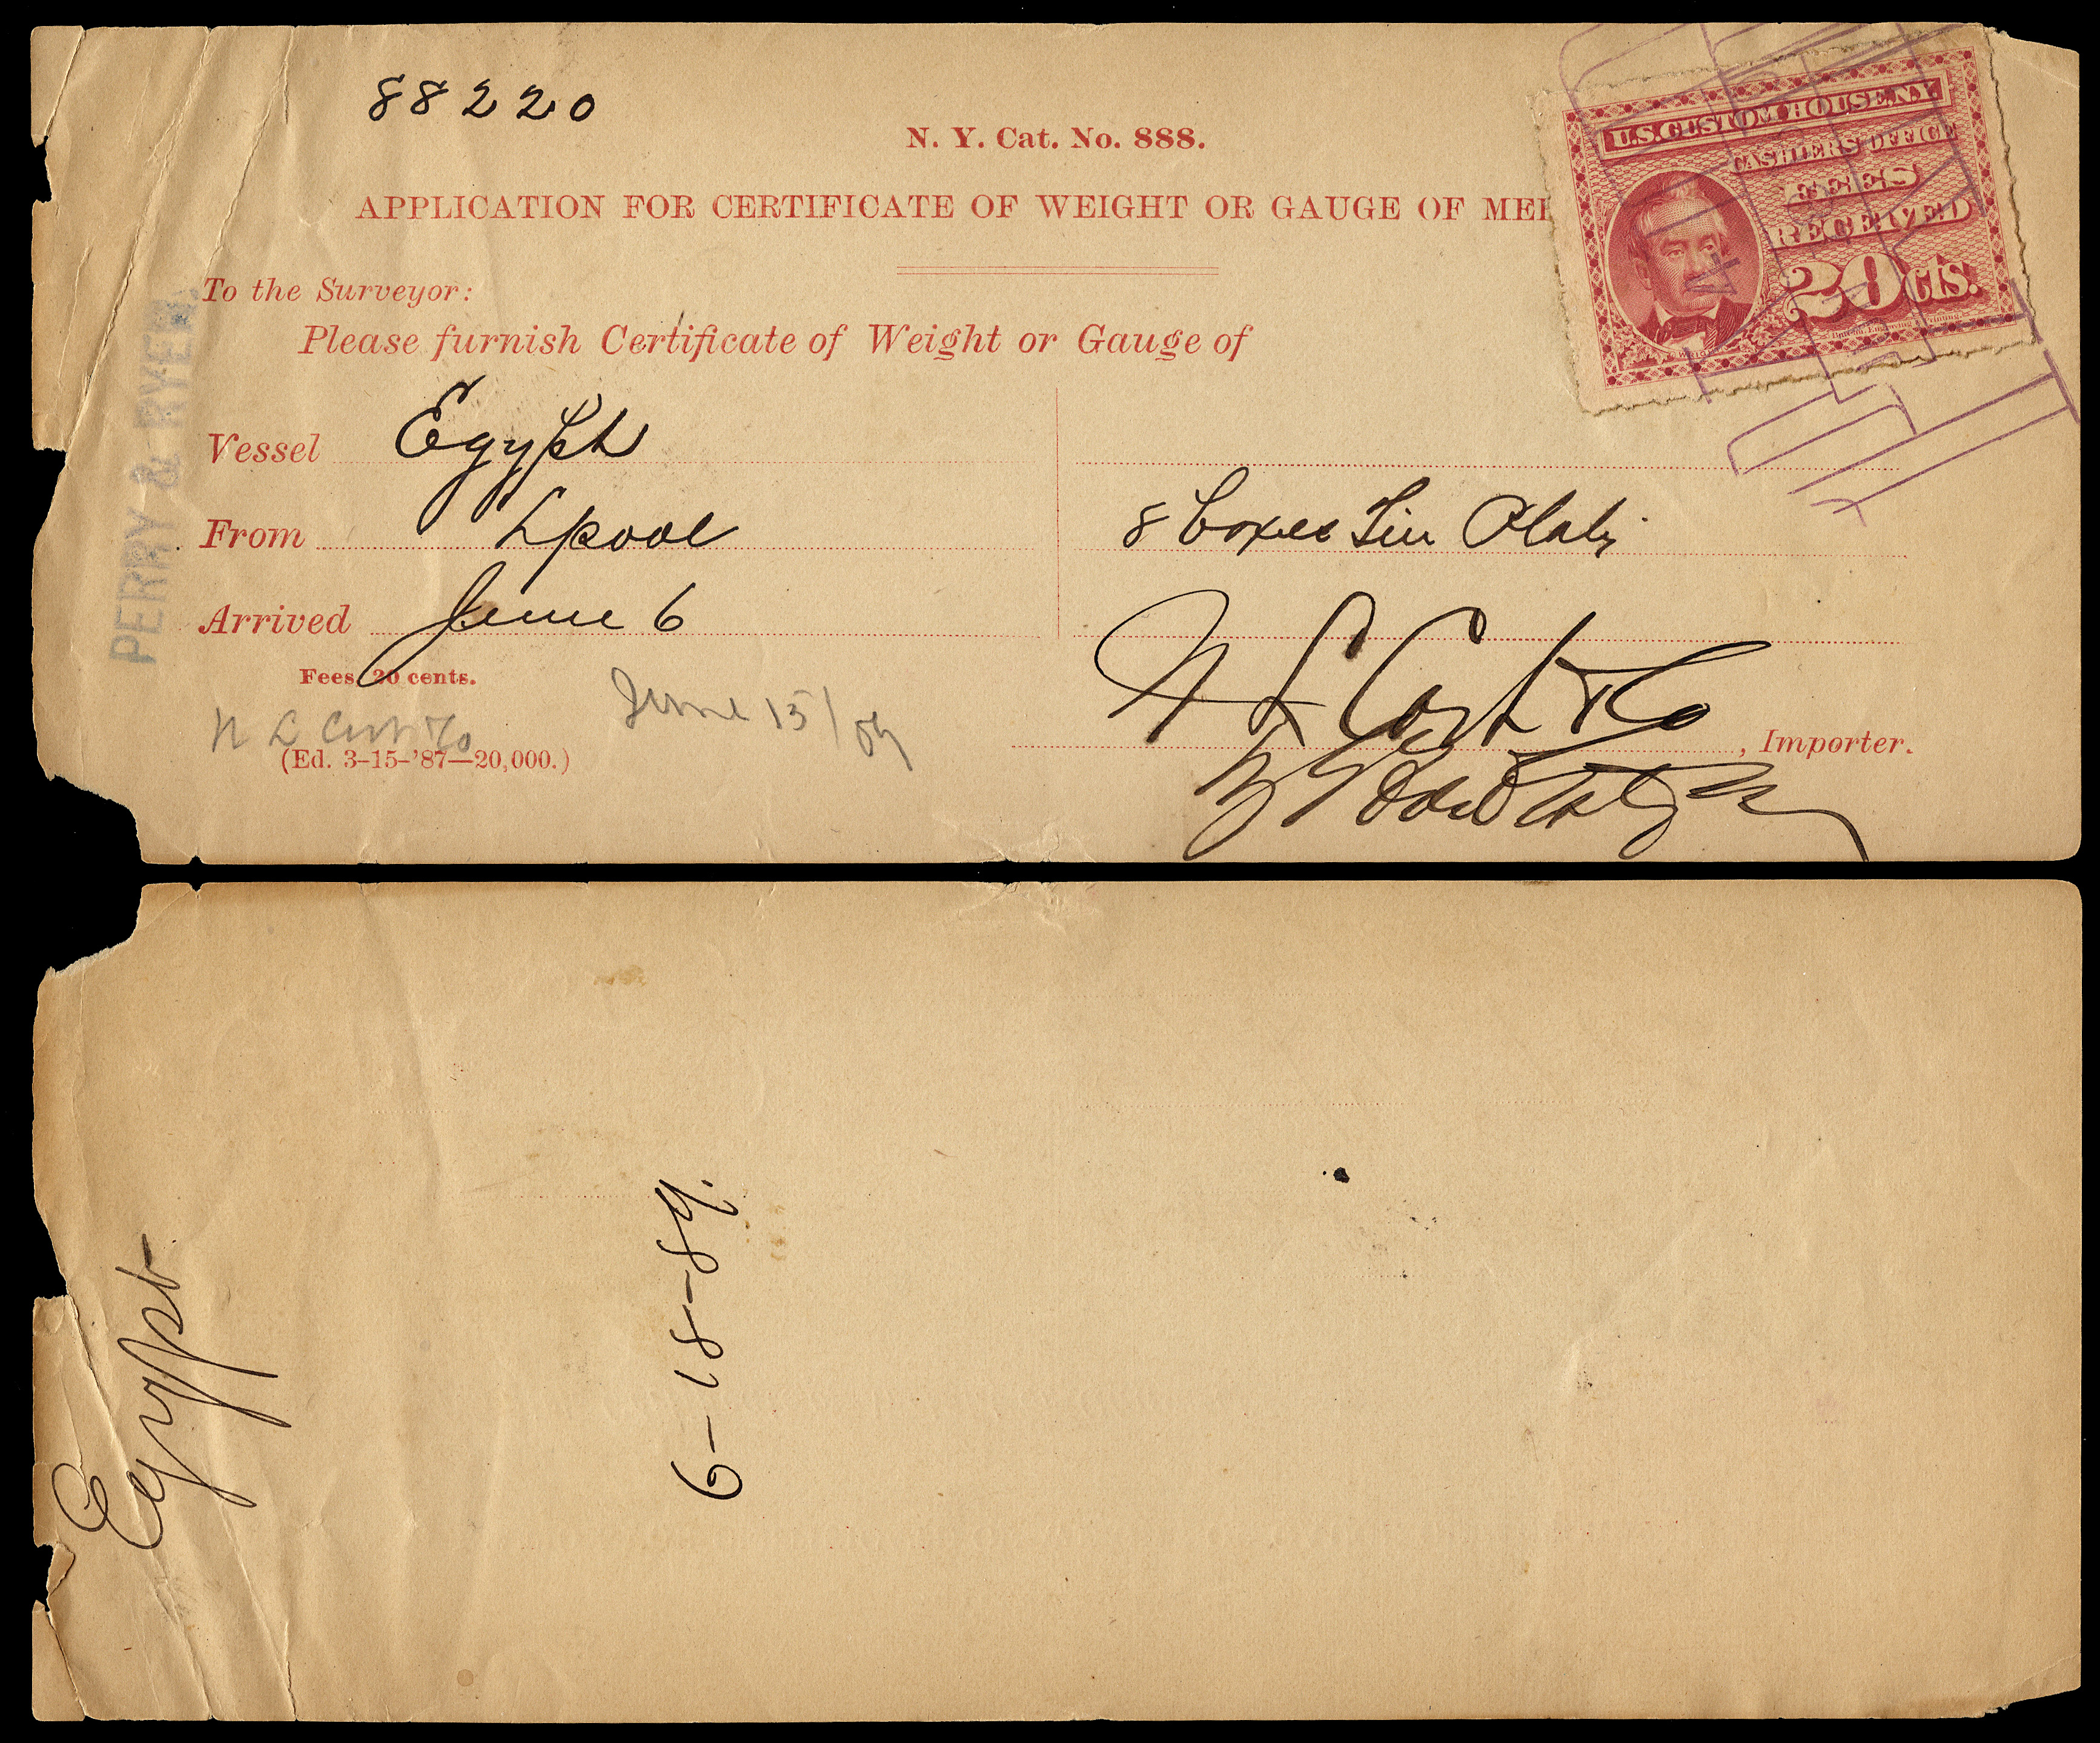 88220
N. Y. Cat. No. 888.
APPLICATION FOR CERTIFICATE OF WEIGHT OR GAUGE OF MER
U.S. CUSTOM HOUSE, N.Y.
CASHIERS OFFICE
FEES
RECEIVED
20 CTS.
To the Surveyor:
Please furnish Certificate of Weight or Gauge of
PERRY & RYER,
Vessel Egypt
From Lpool
8 boxes Tin Plate
Arrived June 6
Fees, 20 cents.
N L Cort & Co
June 15/89
N L Cort & Co
, Importer.
(Ed. 3-15-'87—20,000.)
Egypt
6-18-89.